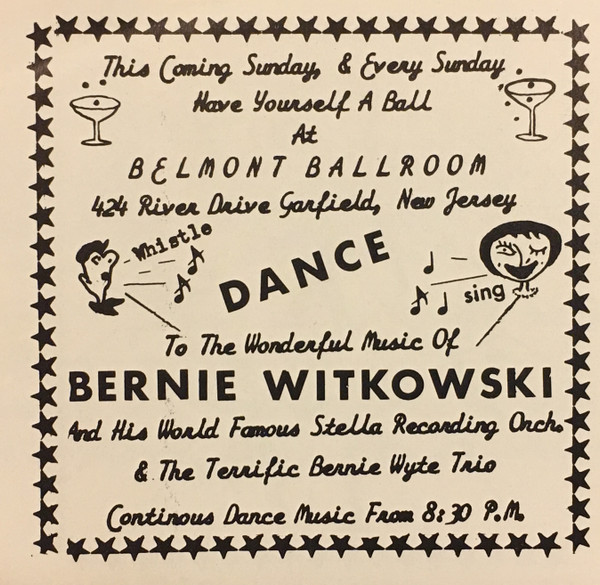 This Coming Sunday, & Every Sunday.
Have Yourself A Ball
At
BELMONT BALLROOM
424 River Drive Garfield, New Jersey
Whistle
DANCE
sing
To The Wonderful Music Of
BERNIE WITKOWSKI
And His World Famous Stella Recording Orch.
& The Terrific Bernie Wyte Trio
Continous Dance Music From 8:30 P.M.